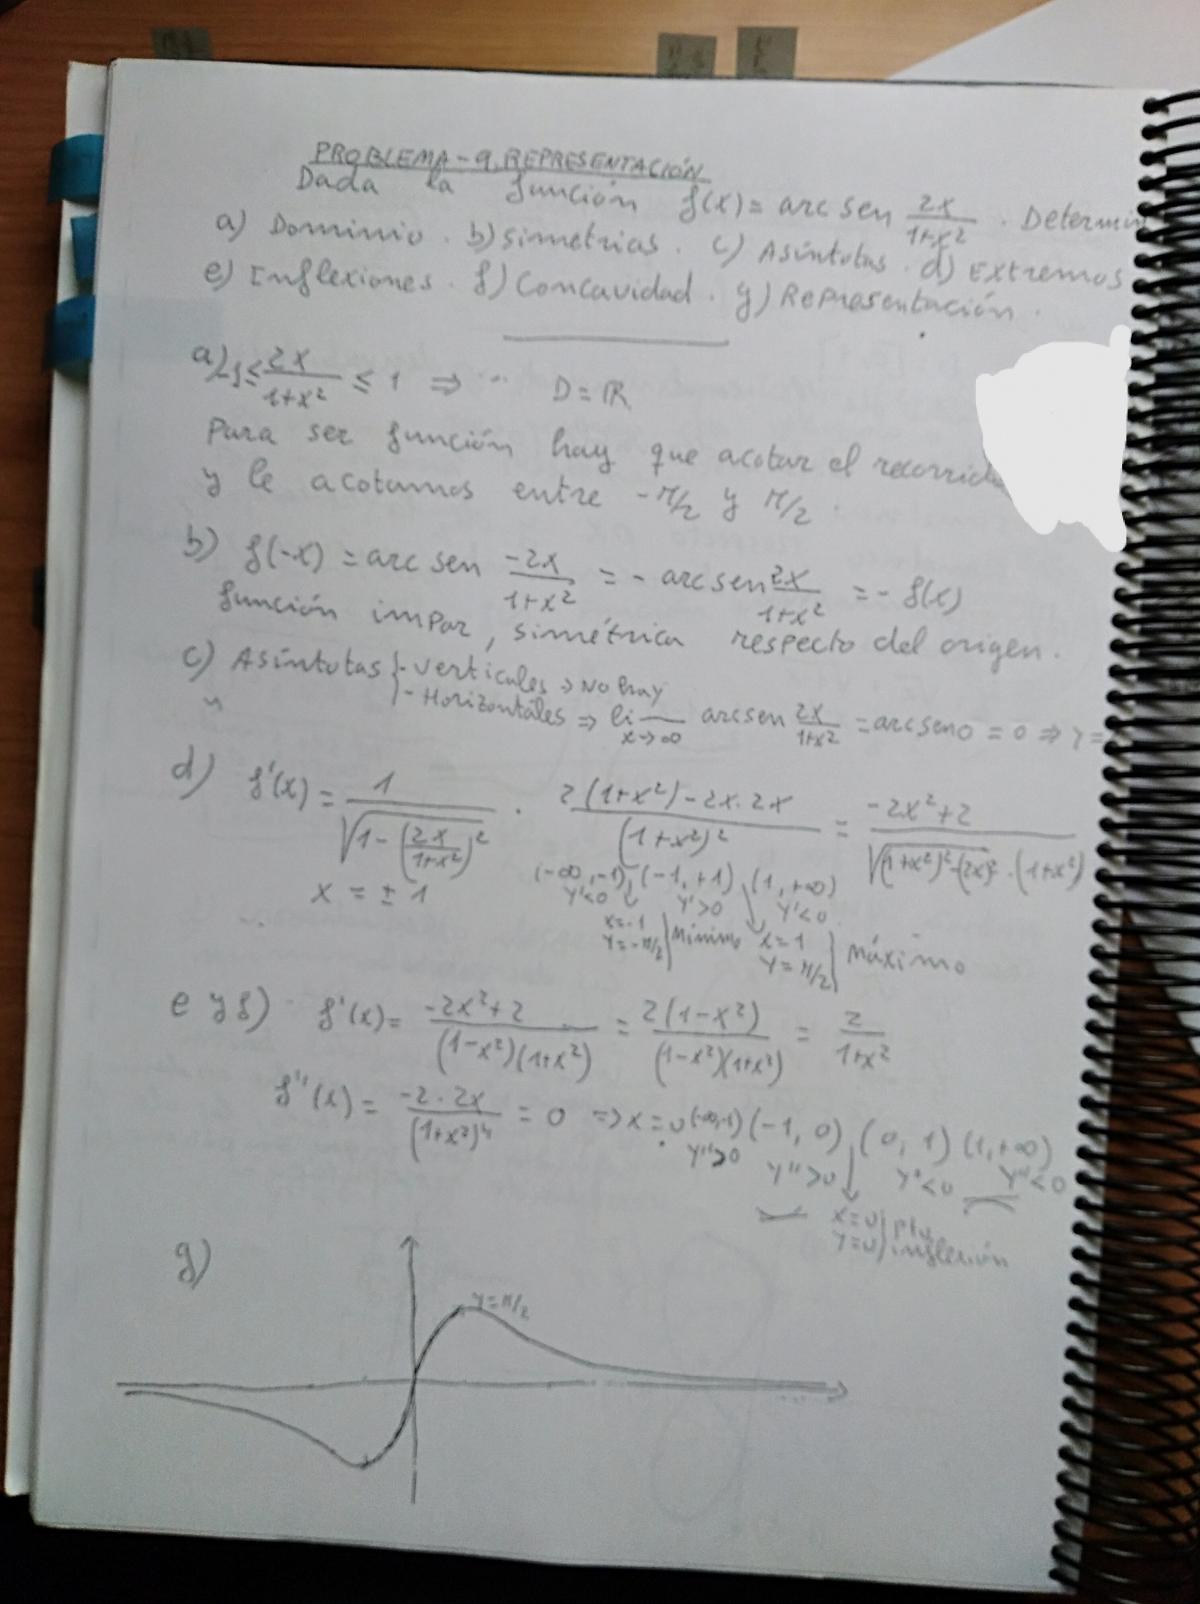 PROBLEMA-9. REPRESENTACIÓN
Dada la función f(x) = arc sen 2x/(1+x²) . Determin
a) Dominio . b) simetrías . c) Asíntotas . d) Extremos
e) Inflexiones . f) Concavidad . g) Representación .
a) -1 ≤ 2x/(1+x²) ≤ 1 ⇒ D = ℝ
Para ser función hay que acotar el recorrido
y le acotamos entre -π/2 y π/2 .
b) f(-x) = arc sen -2x/(1+x²) = - arc sen 2x/(1+x²) = - f(x)
función impar, simétrica respecto del origen .
c) Asíntotas } - Verticales ⇒ No hay
- Horizontales ⇒ lim x→∞ arc sen 2x/(1+x²) = arc sen 0 = 0 ⇒ y =
d) f'(x) = 1/√(1 - (2x/(1+x²))²) · (2(1+x²) - 2x·2x)/(1+x²)² = (-2x²+2)/(√((1+x²)²-(2x)²) · (1+x²))
x = ±1 (-∞,-1) (-1,+1) (1,+∞)
y'<0 y'>0 y'<0
x=-1 y=-π/2 } Mínimo x=1 y=π/2 } Máximo
e y f) f'(x) = (-2x²+2)/((1-x²)(1+x²)) = 2(1-x²)/((1-x²)(1+x²)) = 2/(1+x²)
f''(x) = -2·2x/(1+x²)⁴ = 0 ⇒ x = 0 (-∞,-1) (-1, 0) (0, 1) (1,+∞)
y''>0 y''>0 y''<0 y''<0
x=0 y=0 } pto inflexión
g)
y=π/2